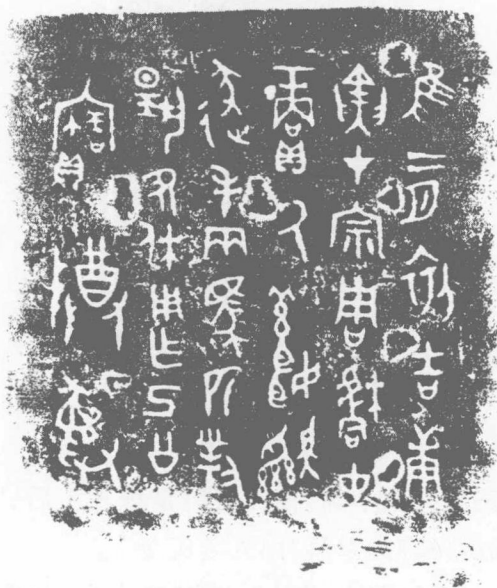 隹二月初吉庚
寅才宗周中
賞氒
毛兩馬匹對
揚尹休用乍己公
寶尊彝